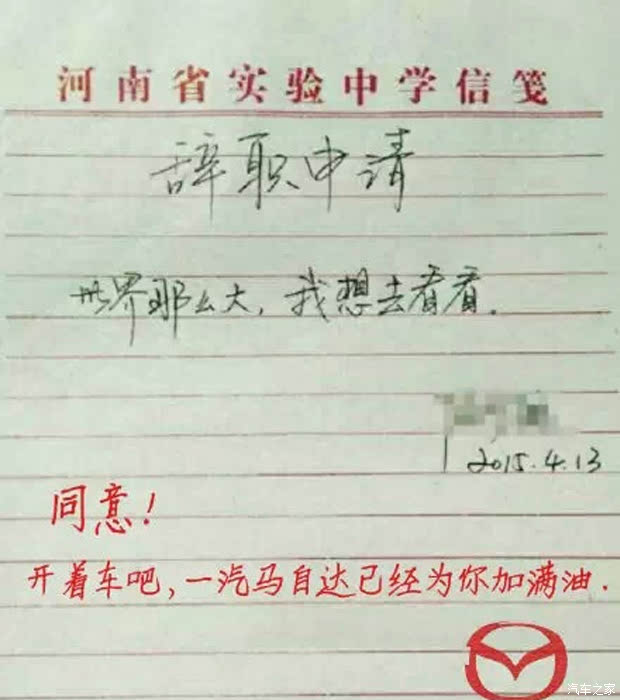 河南省实验中学信笺
辞职申请
世界那么大，我想去看看.
2015.4.13
同意！
开着车吧，一汽马自达已经为你加满油.
汽车之家